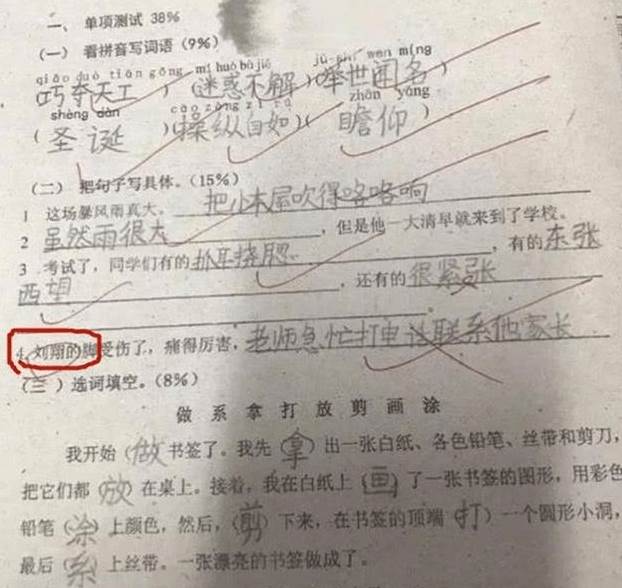 一、单项测试 38%
(一) 看拼音写词语 (9%)
qiǎo duó tiān gōng mí huò bù jiě jǔ shì wén míng
(巧夺天工) (迷惑不解) (举世闻名)
shèng dàn cāo zòng zì rú zhān yǎng
(圣诞) (操纵自如) (瞻仰)
(二) 把句子写具体。(15%)
1 这场暴风雨真大,把小木屋吹得咯咯响
2 虽然雨很大,但是他一大清早就来到了学校。
3 考试了,同学们有的抓耳挠腮,有的东张
西望,还有的很紧张
4.刘翔的脚受伤了,痛得厉害,老师急忙打电话联系他家长
(三) 选词填空。(8%)
做 系 拿 打 放 剪 画 涂
我开始(做)书签了。我先(拿)出一张白纸、各色铅笔、丝带和剪刀,
把它们都(放)在桌上。接着,我在白纸上(画)了一张书签的图形,用彩色
铅笔(涂)上颜色,然后,(剪)下来,在书签的顶端(打)一个圆形小洞,
最后(系)上丝带。一张漂亮的书签做成了。